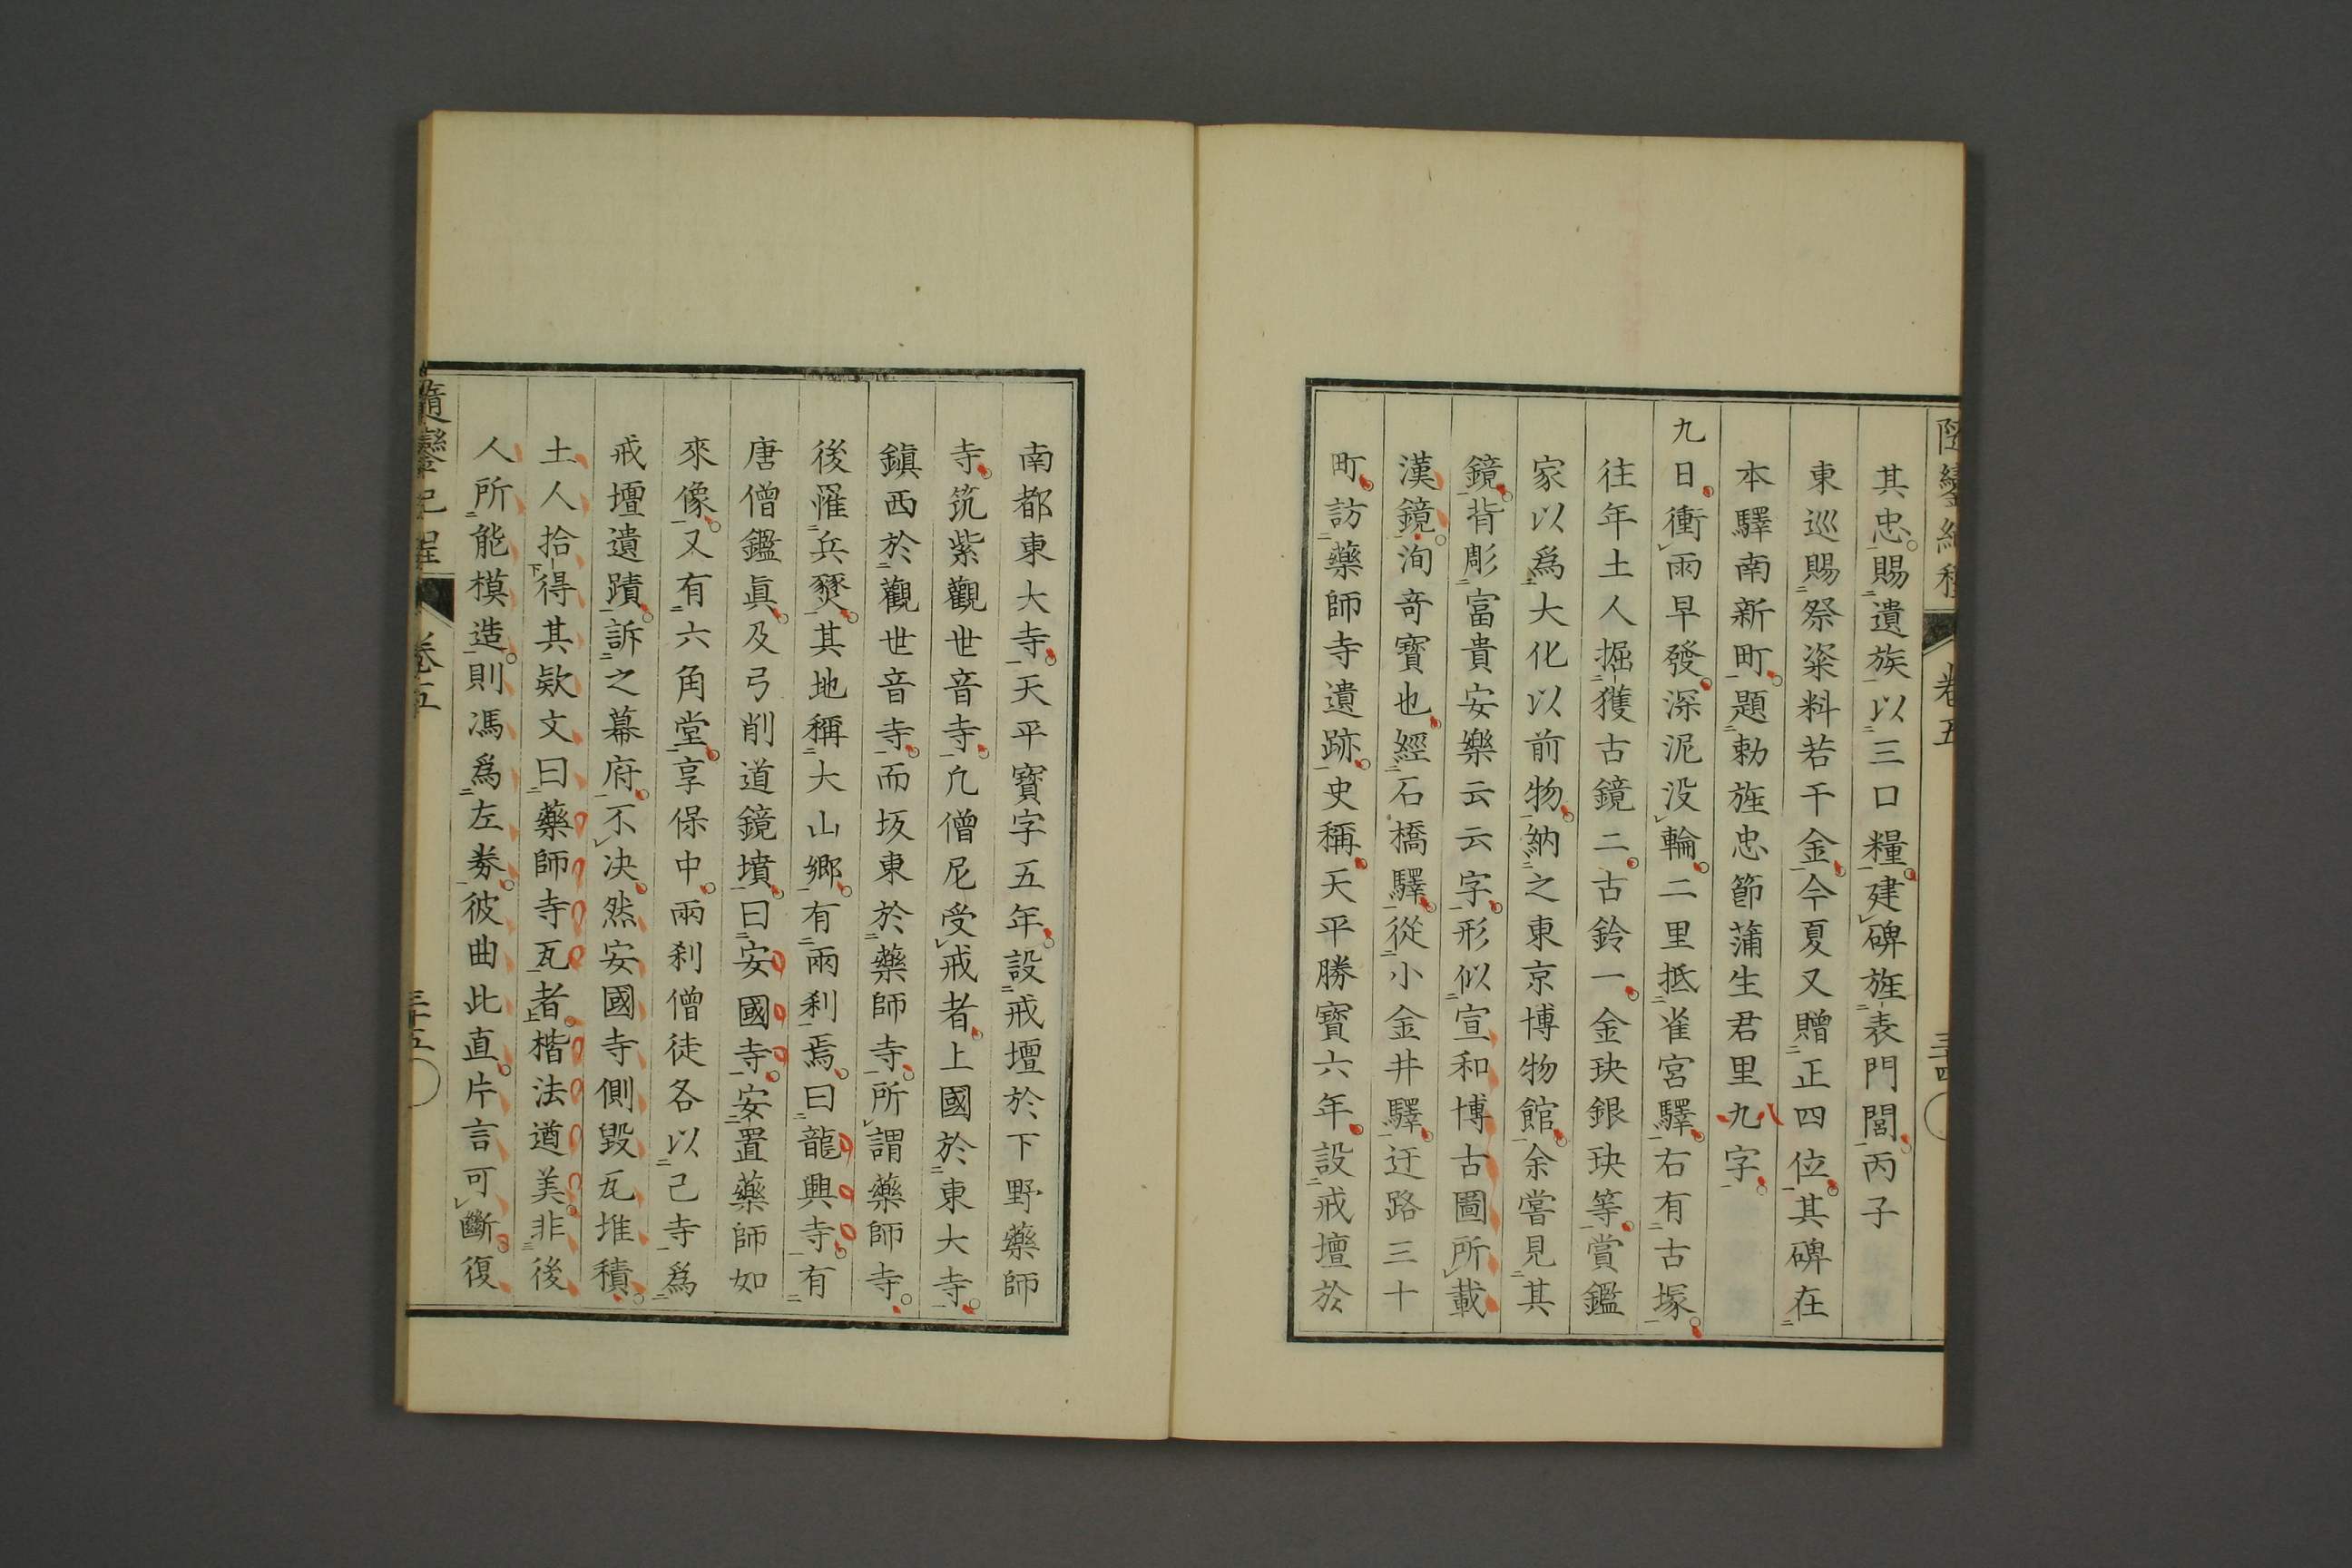 隨鑾紀程 卷五 三十四
其忠賜遺族以三口糧建碑旌表門閭丙子
東巡賜祭粢料若干金今夏又贈正四位其碑在
本驛南新町題勅旌忠節蒲生君里九字
九日衝雨早發深泥没輪二里抵雀宮驛右有古塚
往年土人掘獲古鏡二古鈴一金玦銀玦等賞鑑
家以爲大化以前物納之東京博物館余嘗見其
鏡背彫富貴安樂云云字形似宣和博古圖所載
漢鏡洵竒寶也經石橋驛從小金井驛迂路三十
町訪藥師寺遺跡史稱天平勝寳六年設戒壇於
南都東大寺天平寳字五年設戒壇於下野藥師
寺筑紫觀世音寺凢僧尼受戒者上國於東大寺
鎭西於觀世音寺而坂東於藥師寺所謂藥師寺
後罹兵燹其地稱大山郷有兩刹焉曰龍興寺有
唐僧鑑眞及弓削道鏡墳曰安國寺安置藥師如
來像又有六角堂享保中兩刹僧徒各以己寺爲
戒壇遺蹟訴之幕府不决然安國寺側毀瓦堆積
土人拾得其欵文曰藥師寺瓦者楷法遒美非後
人所能模造則馮爲左劵彼曲此直片言可斷復
隨鑾紀程 卷五 三十五